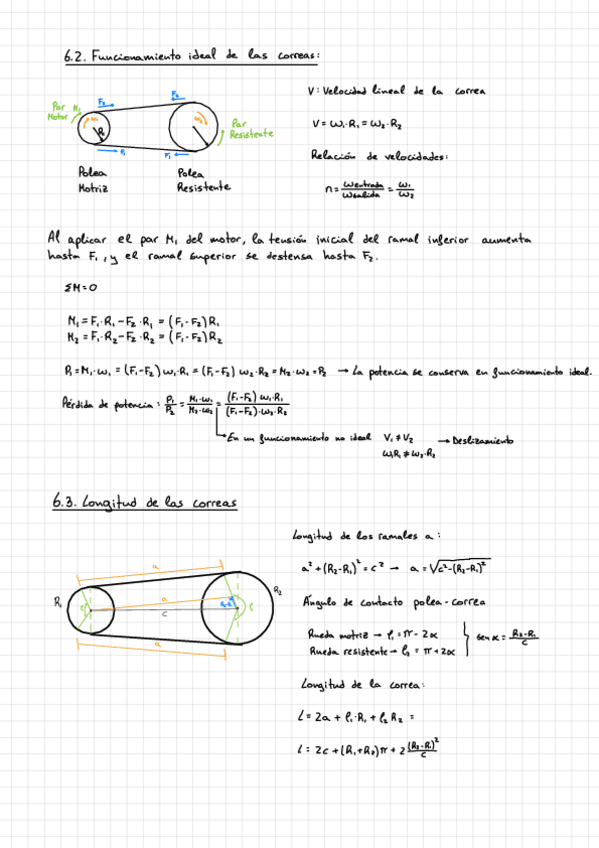 6.2. Funcionamiento ideal de las correas:
Par Motor M₁
F₂
F₂
ω₁
R₁
ω₂
Par Resistente
F₁
F₁
Polea Motriz
Polea Resistente
V: Velocidad lineal de la correa
V = ω₁·R₁ = ω₂·R₂
Relación de velocidades:
n = ωentrada/ωsalida = ω₁/ω₂
Al aplicar el par M₁ del motor, la tensión inicial del ramal inferior aumenta
hasta F₁, y el ramal superior se destensa hasta F₂.
ΣM=0
M₁ = F₁·R₁ - F₂·R₁ = (F₁-F₂)R₁
M₂ = F₁·R₂ - F₂·R₂ = (F₁-F₂)R₂
P₁ = M₁·ω₁ = (F₁-F₂) ω₁·R₁ = (F₁-F₂) ω₂·R₂ = M₂·ω₂ = P₂ → La potencia se conserva en funcionamiento ideal.
Pérdida de potencia: P₁/P₂ = M₁·ω₁/M₂·ω₂ = (F₁-F₂) ω₁·R₁/(F₁-F₂)·ω₂·R₂
En un funcionamiento no ideal V₁ ≠ V₂ → Deslizamiento
ω₁R₁ ≠ ω₂·R₂
6.3. Longitud de las correas
a
R₁
a
c
R₂
a
Longitud de los ramales a:
a² + (R₂-R₁)² = c² → a = √c²-(R₂-R₁)²
Ángulo de contacto polea-correa
Rueda motriz → ρ₁ = π - 2α
Rueda resistente → ρ₂ = π + 2α
sen α = R₂-R₁/c
Longitud de la correa:
L = 2a + ρ₁·R₁ + ρ₂ R₂ =
L = 2c + (R₁+R₂)π + 2 (R₂-R₁)²/c